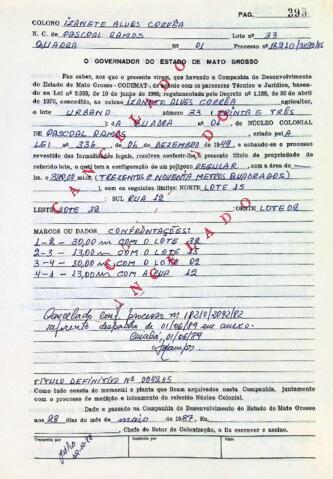 PAG. 393
COLONO IZANETE ALVES CORRÊA
N. C. de PASCOAL RAMOS Lote nº 33
QUADRA Nº 01 Processo nº 18210/2092/82
O GOVERNADOR DO ESTADO DE MATO GROSSO
Faz saber, aos que o presente virem, que havendo a Companhia de Desenvolvimento
do Estado de Mato Grosso - CODEMAT -, de acordo com os pareceres Técnico e Jurídico, baseados
na Lei nº de 10 de junho de regulamentada pelo Decreto nº 1.138, de 30 de
abril de 1970, concedido, ao colono IZANETE ALVES CORRÊA agricultor,
o lote URBANO número 33 (TRINTA E TRÊS
) da QUADRA nº 01, do NÚCLEO COLONIAL
de PASCOAL RAMOS, criado pela
LEI nº 336, de 06 de DEZEMBRO de 1949, e achando-se o processo
revestido das formalidades legais, resolveu conferir-lhe o presente título de propriedade do
referido lote, o qual tem a configuração de um polígono REGULAR, com a área de
ha. e 390,00 mts2, (TREZENTOS E NOVENTA METROS QUADRADOS)
), com os seguintes limites: NORTE LOTE 15
; SUL RUA 12
LESTE LOTE 32 OESTE LOTE 02
MARCOS OU DADOS CONFRONTAÇÕES:
1-2 - 30,00 m COM O LOTE 32
2-3 - 13,00 m COM O LOTE 15
3-4 - 30,00 m COM O LOTE 02
4-1 - 13,00 m COM A RUA 12
CANCELADO
CANCELADO
Cancelado conf. processo nº 18210/2092/82
referente despacho de 01/06/89 em anexo.
Cuiabá, 01/06/89
TÍTULO DEFINITIVO Nº 009205
Como tudo consta do memorial e planta que ficam arquivados nesta Companhia, juntamente
com o processo de medição e loteamento do referido Núcleo Colonial.
Dado e passado na Companhia de Desenvolvimento do Estado de Mato Grosso
aos 28 dias do mês de maio de 1987. Eu,
, Chefe do Setor de Colonização, o fiz escrever e assino.
Transcrito por
Conferido por
Visto